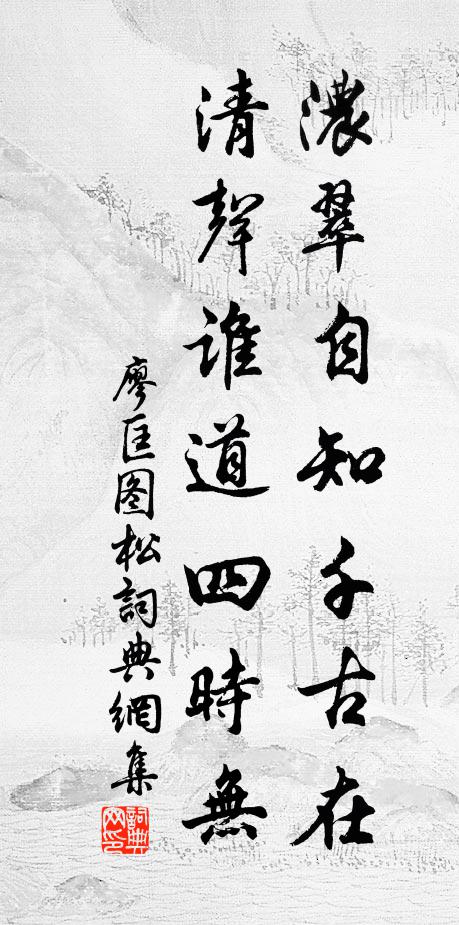 濃翠自知千古在
清聲誰道四時無
廖匡图松詞典網集
詞典网印